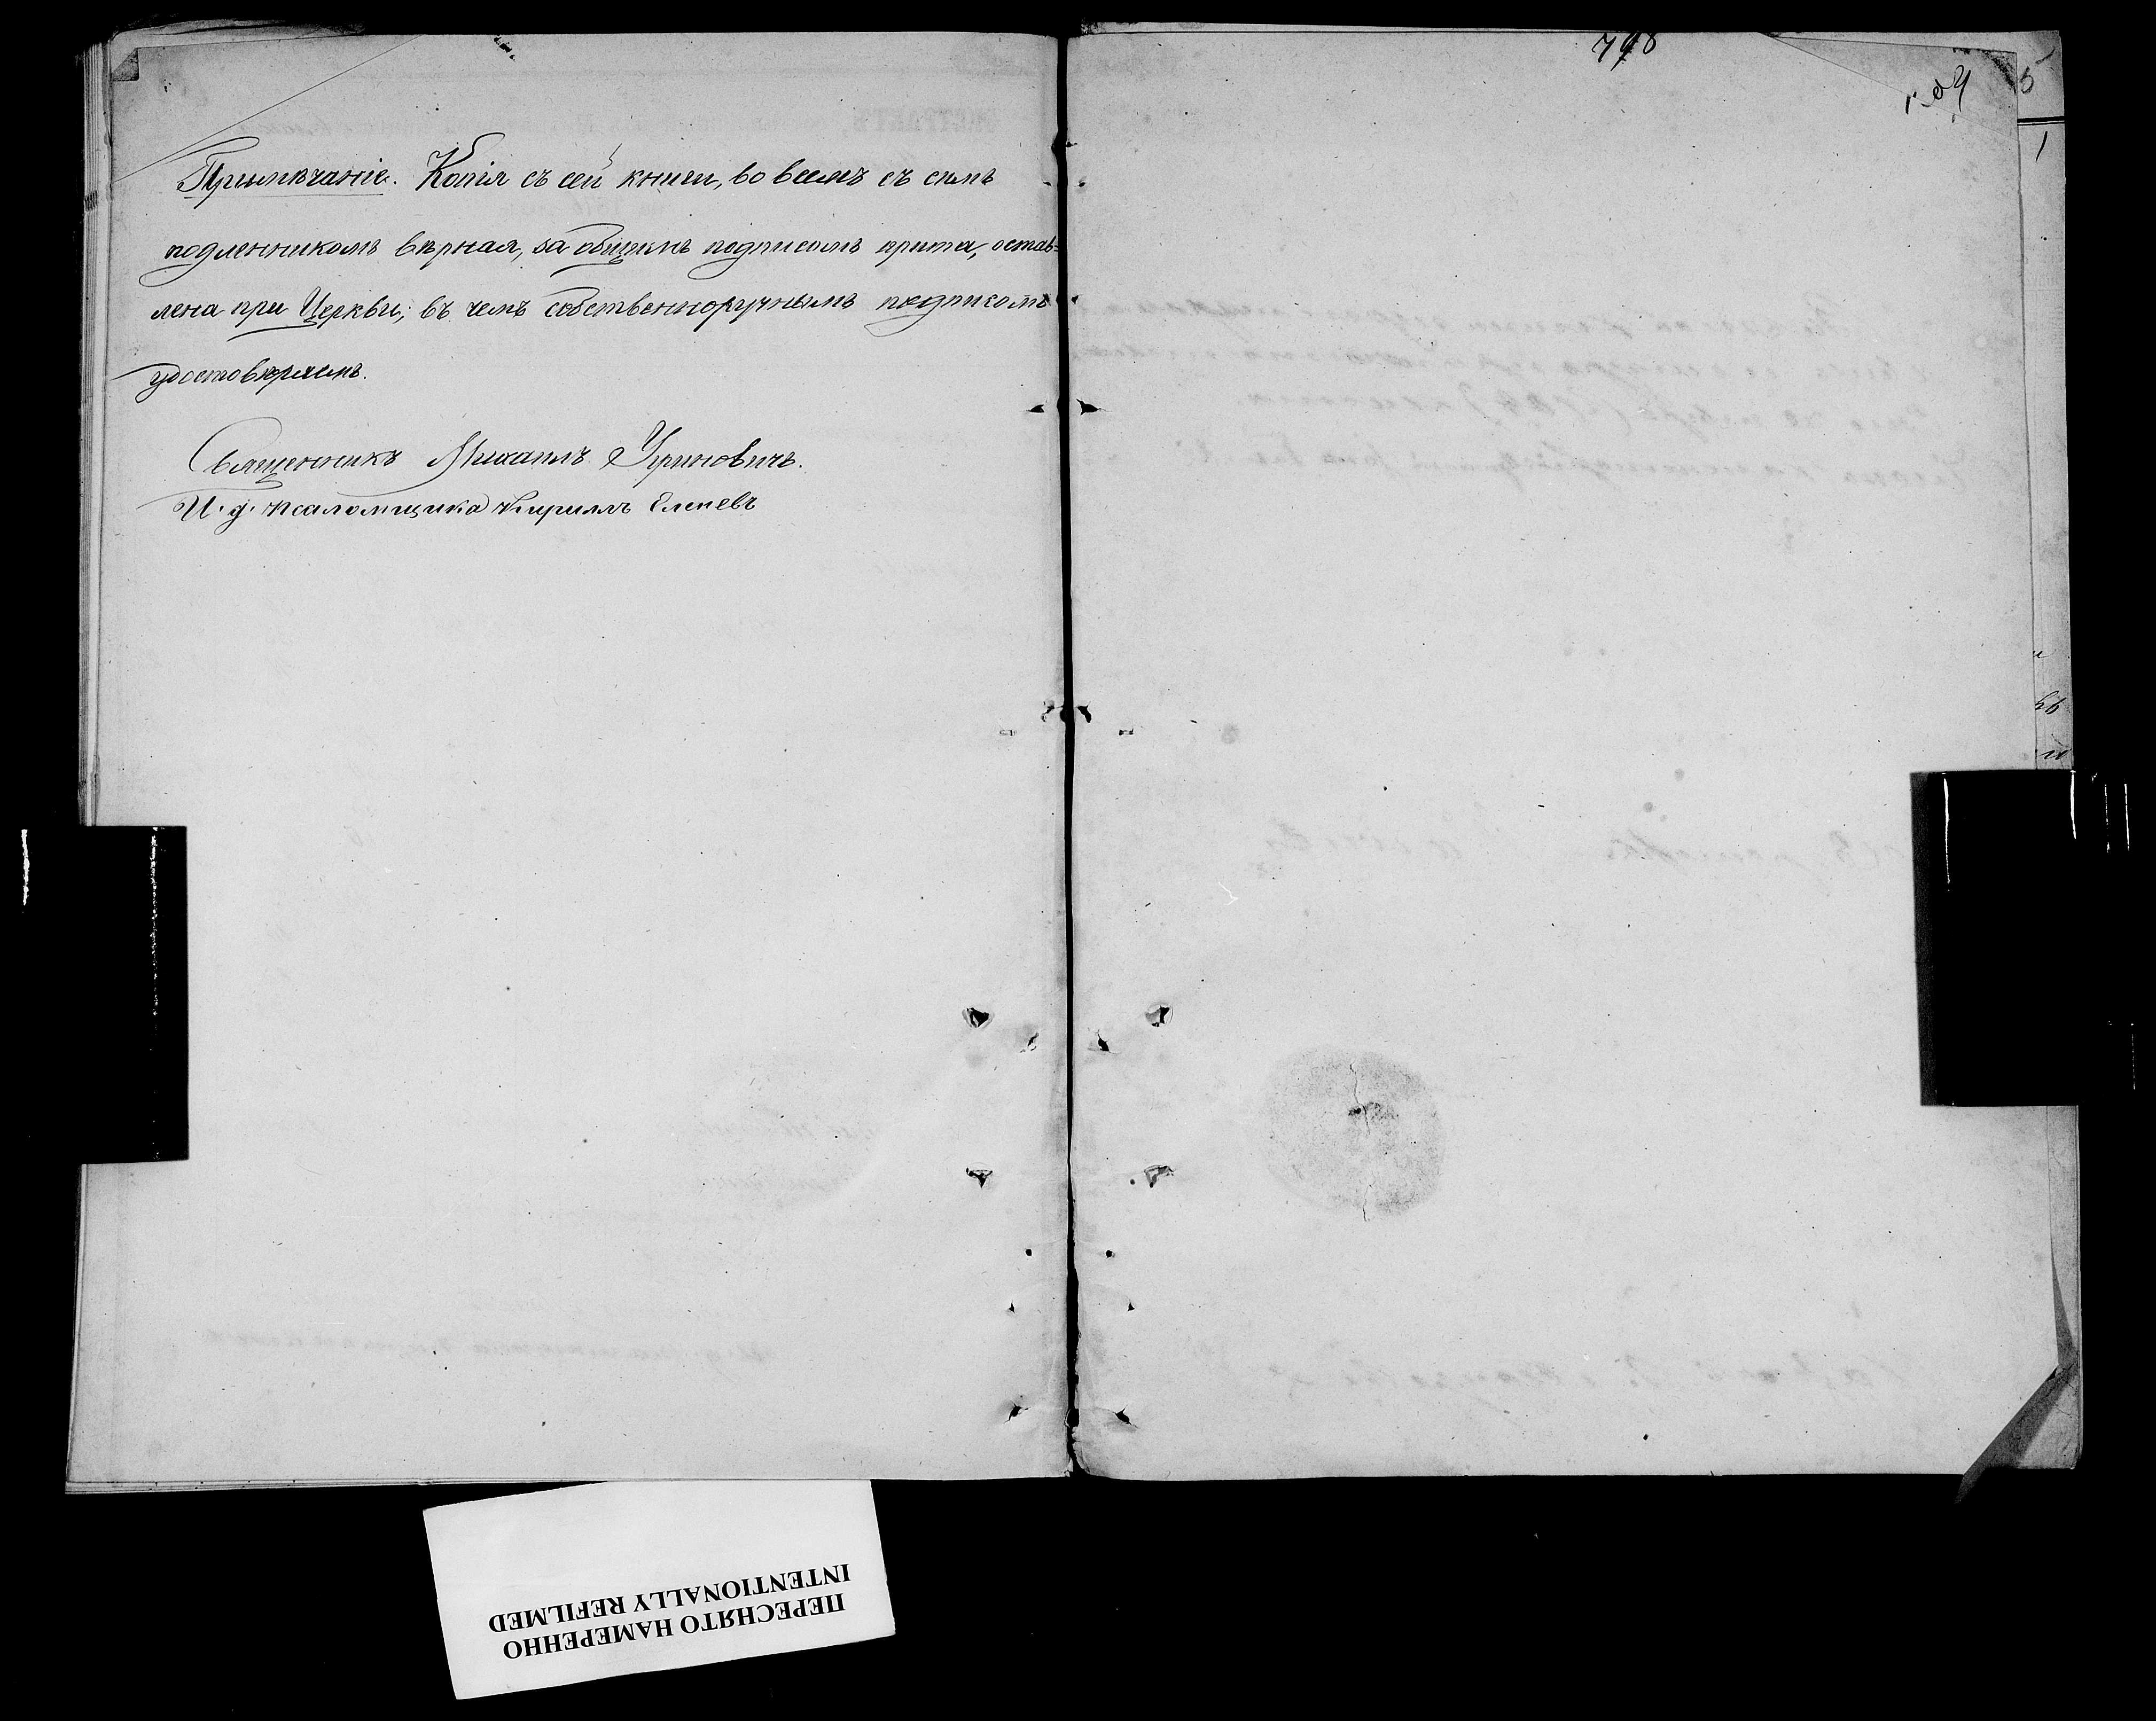 Примѣчаніе. Копія съ сей книги, во всемъ съ симъ
подленникомъ вѣрная, за общимъ подписомъ причта, остав=
лена при Церкви; въ чемъ собственноручнымъ подписомъ
удостовѣряемъ.
Священникъ Михаилъ
И. д. псаломщика Кириллъ
798
5
1
ПЕРЕСНЯТО НАМЕРЕННО
INTENTIONALLY REFILMED